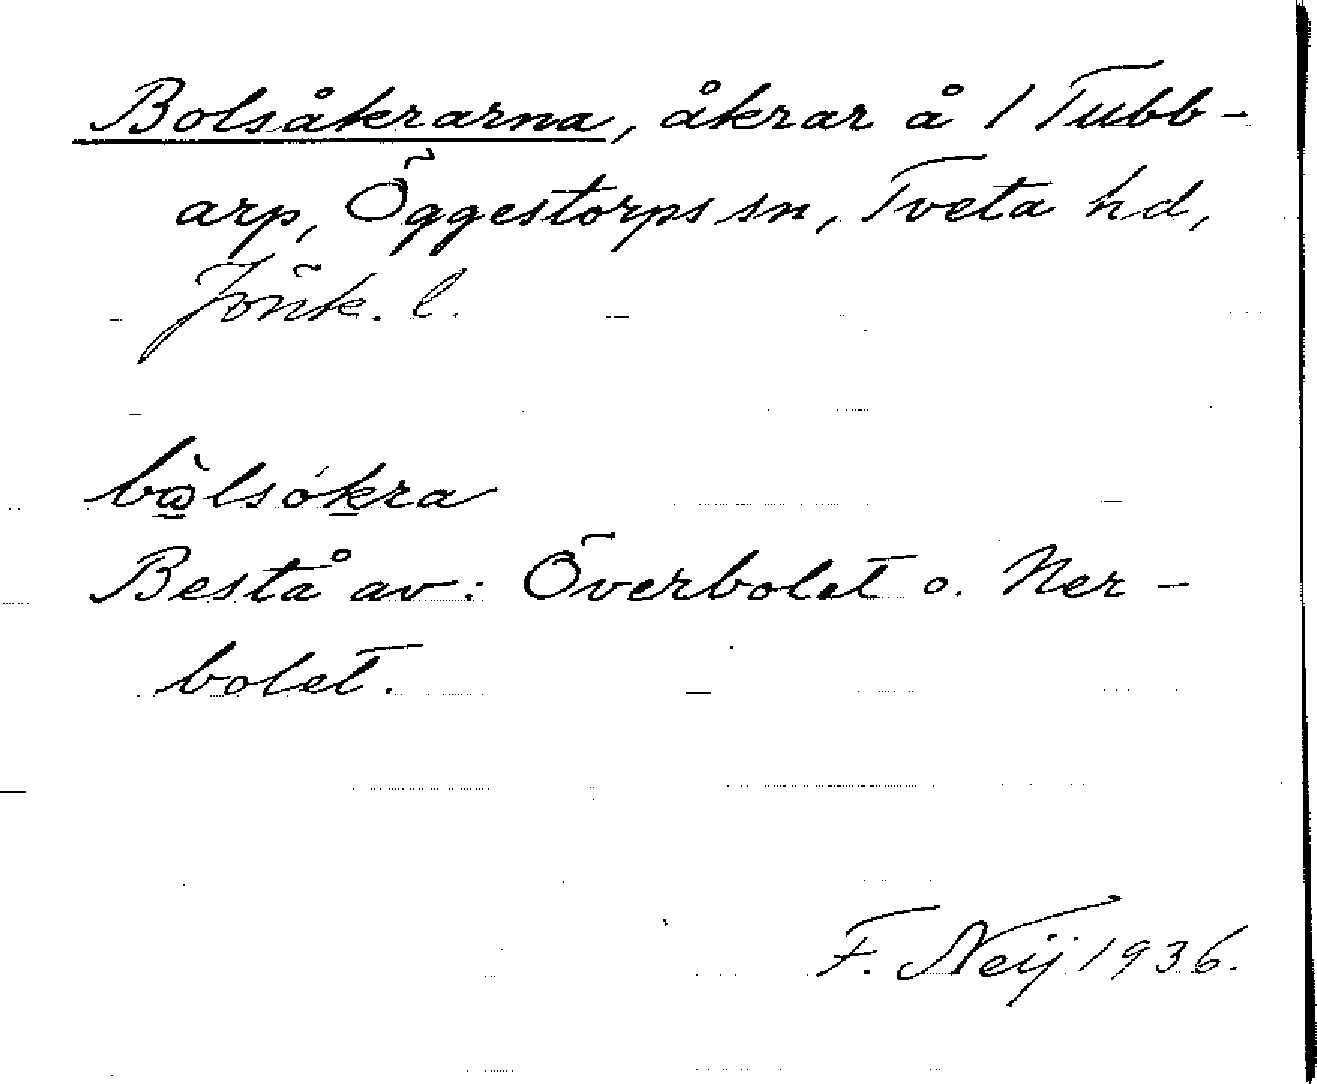 Bolsåkrarna, åkrar å 1 Tubb-
arp, Öggestorps sn, Tveta hd,
Jönk. l.
bòlsókra
Bestå av: Överbolet o. Ner-
bolet.
F. Neij 1936.